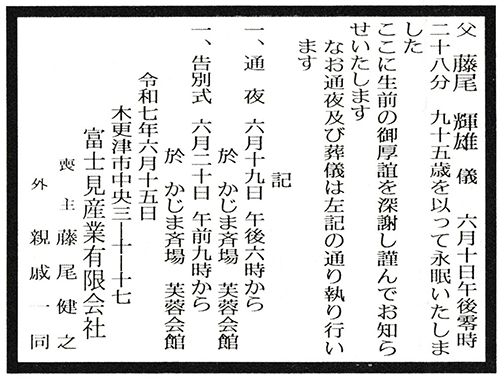 父 藤尾 輝雄 儀 六月十日午後零時
二十八分 九十五歳を以って永眠いたしま
した
ここに生前の御厚誼を深謝し謹んでお知ら
せいたします
なお通夜及び葬儀は左記の通り執り行い
ます
記
一、通 夜 六月十九日 午後六時から
於 かじま斉場 芙蓉会館
一、告別式 六月二十日 午前九時から
於 かじま斉場 芙蓉会館
令和七年六月十五日
木更津市中央三ー十ー十七
富士見産業有限会社
喪主 藤尾健之
外 親戚一同